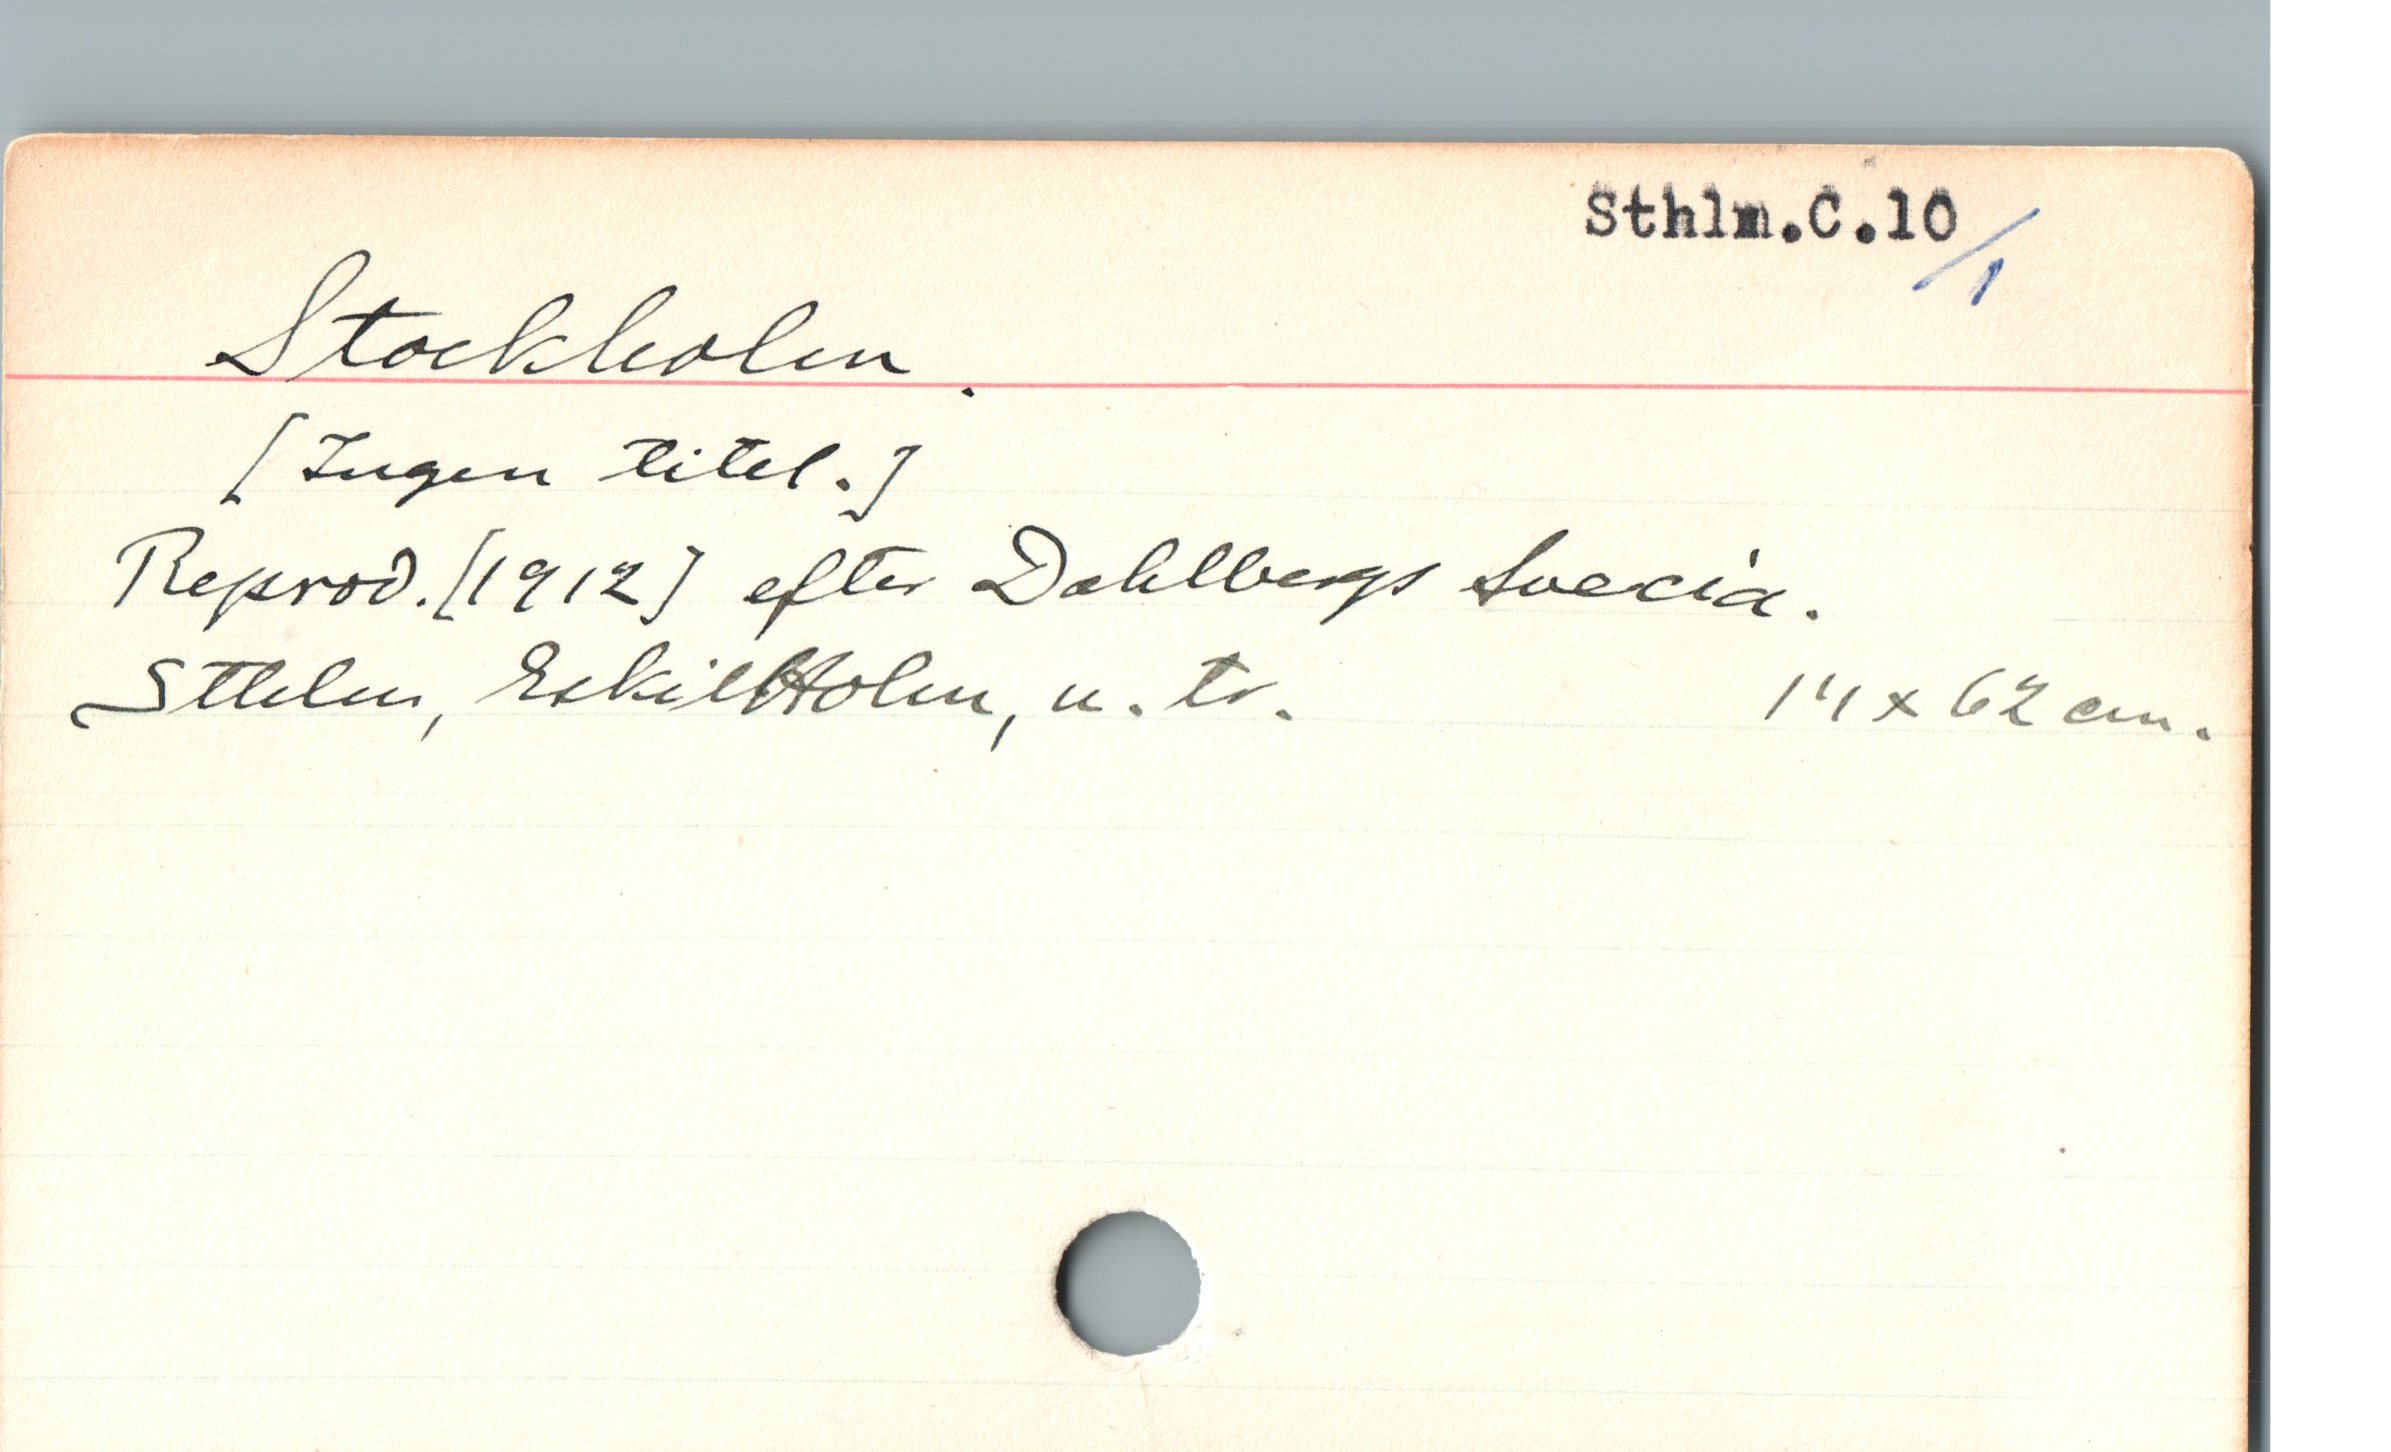 Sthlm.C.10/1
Stockholm.
[Ingen titel.]
Reprod. [1912] efter Dahlbergs Suecia.
Sthlm, Eskil Holm, u. tr. 14 x 62 cm.